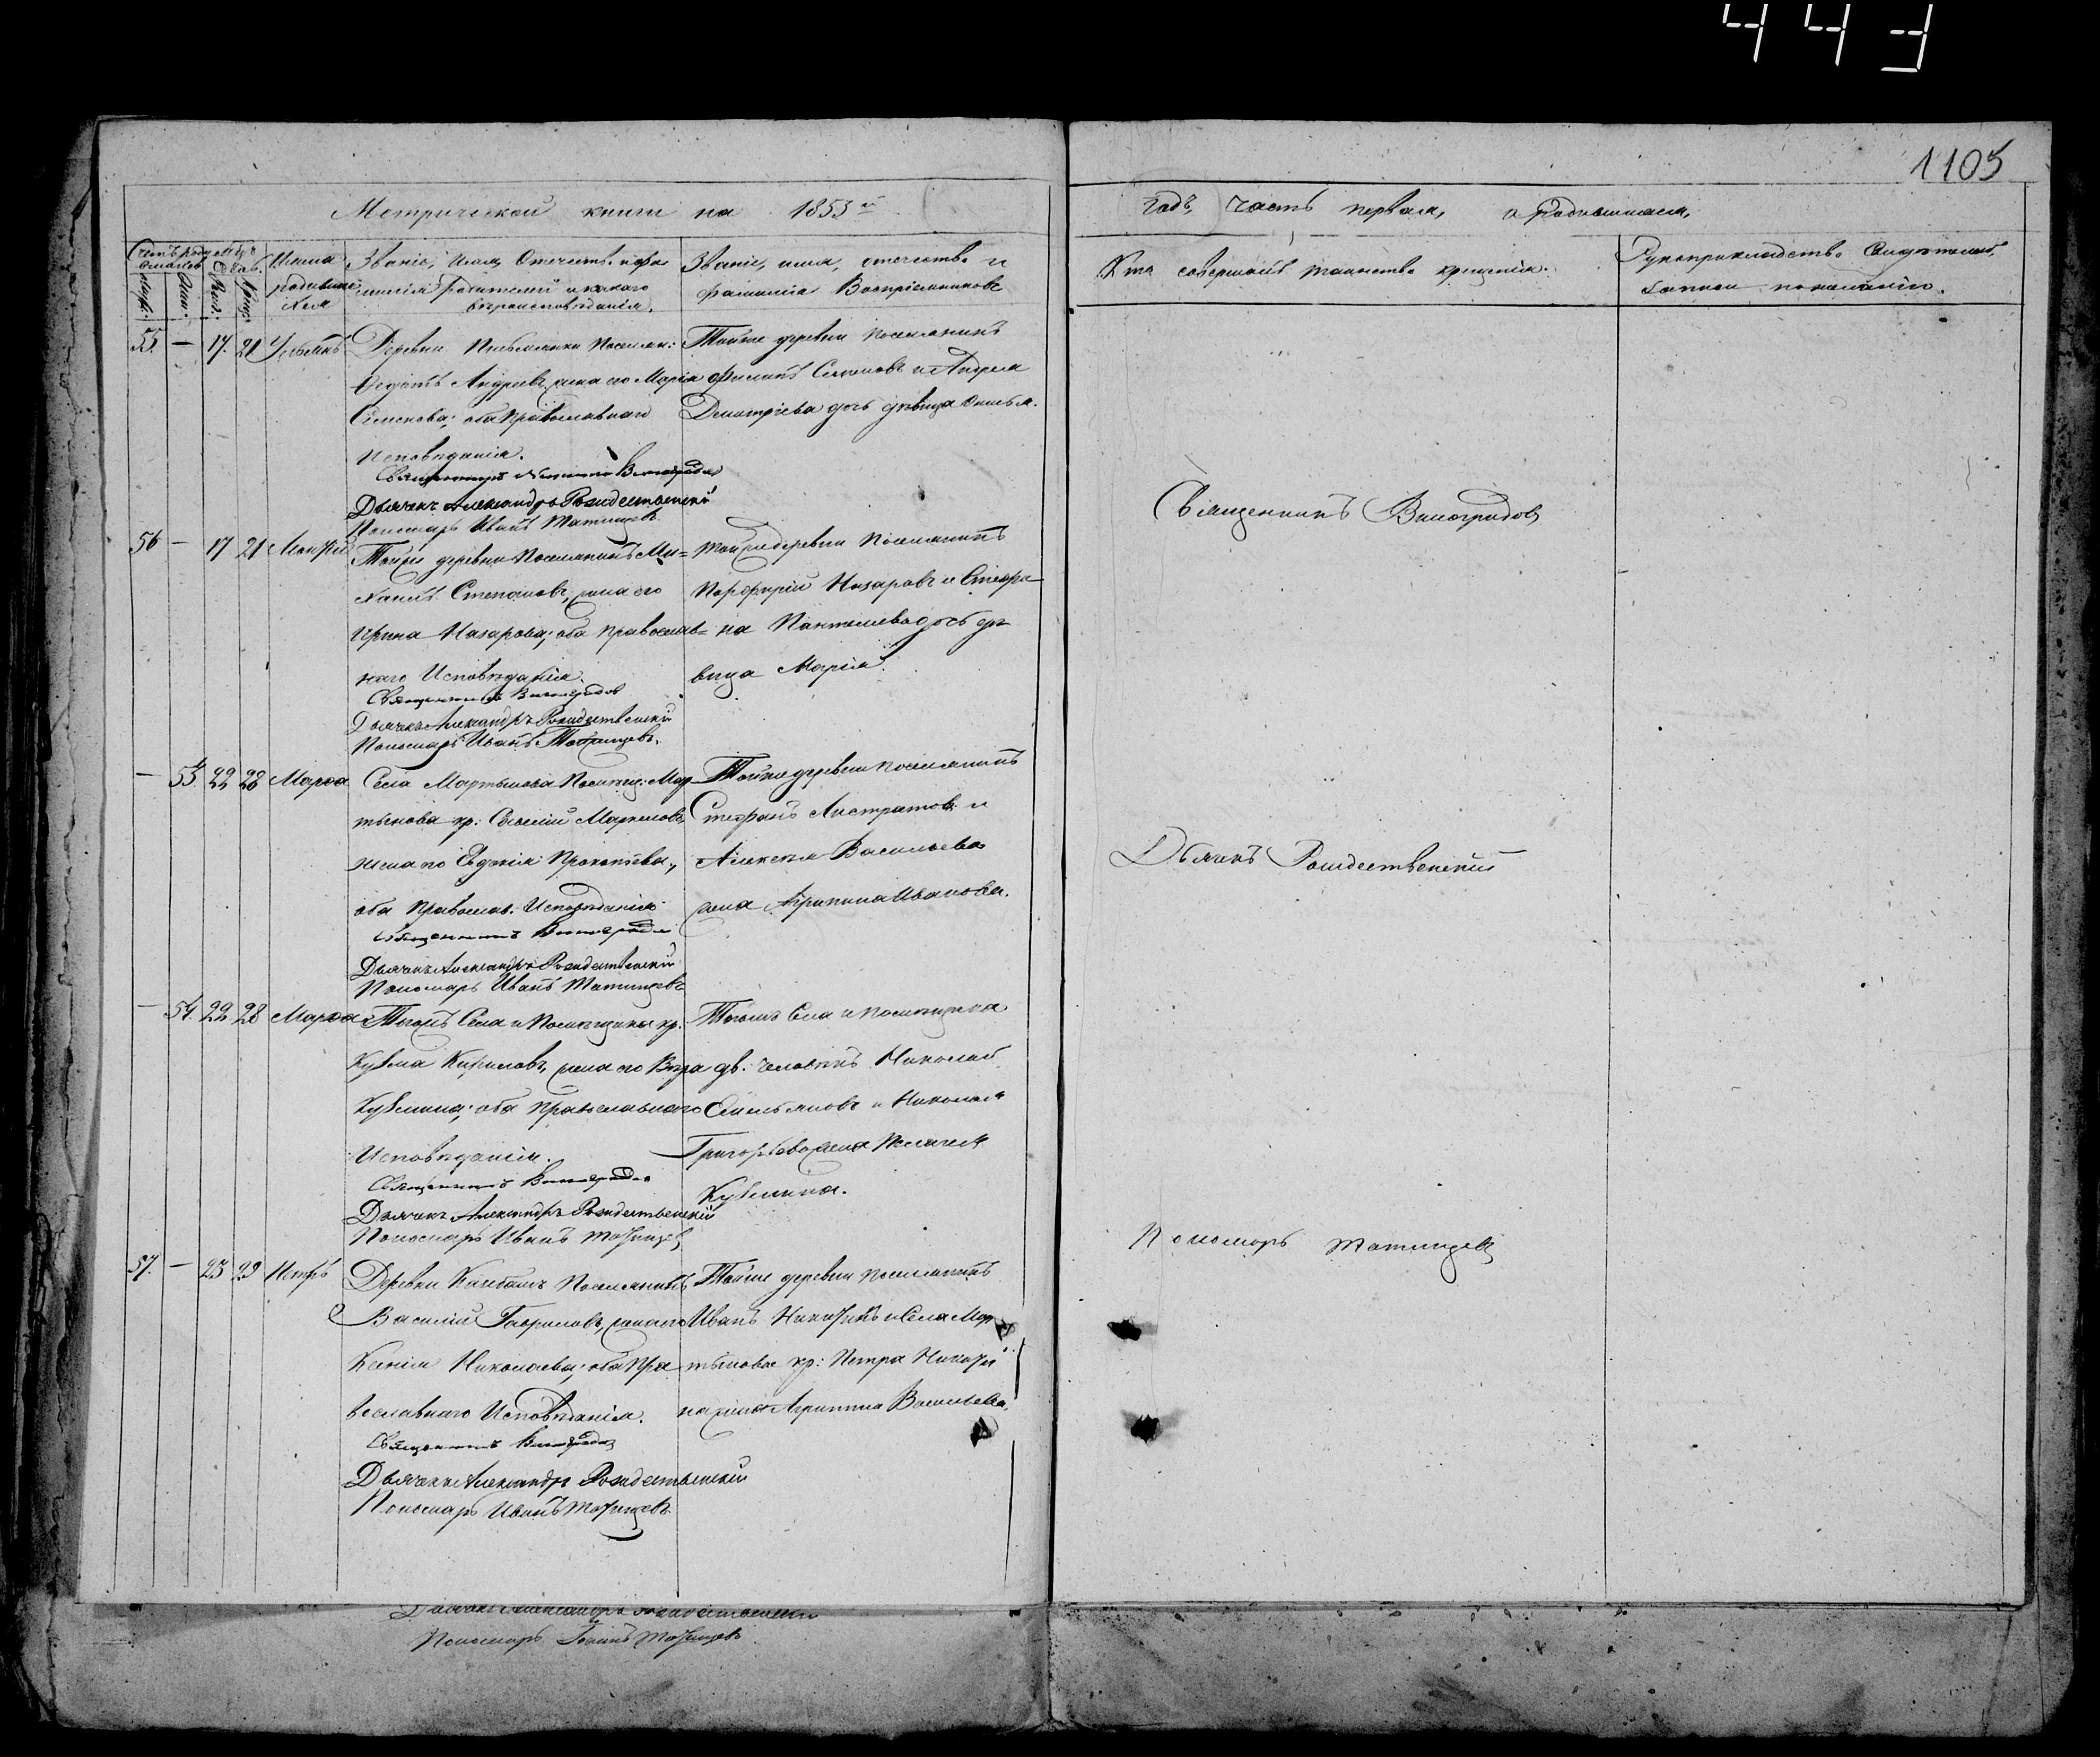 443
1105
Метрической книги на 1853й
годъ, часть первая, о родившихся,
Счетъ родившихся
Мѣсяцъ
Имена родившихся
Званіе, Имя, Отечество и фамилія Родителей и какого вѣроисповѣданія.
Званіе, имя, отечество и фамилія Воспріемниковъ
Кто совершалъ таинство крещенія.
Рукоприкладство Свидѣтелей записи по желанію.
55. — 17. 21
Деревни Поселян:
Андреевъ, жена его Марія
Семенова; оба православнаго
Исповѣданія.
Священникъ Виноградовъ
Дьячекъ Александръ Рождественскій
Пономарь Иванъ Татищевъ
Тойже деревни поселянинъ
Филипъ Семеновъ и Андрея
Дмитріева дочь дѣвица
Священникъ Виноградовъ
56 — 17 21
Тойже деревни Поселянинъ Ми=
хаилъ Степановъ, жена его
Ирина Назарова; оба православ=
наго Исповѣданія.
Священникъ Виноградовъ
Дьячекъ Александръ Рождественскій
Пономарь Иванъ Татищевъ.
Тойже деревни Поселянинъ
Порфирій Назаровъ и Стефа-
на Пантелева дочь дѣ-
вица Марія.
— 53. 22 28 Марѳа
Села Мартынова Помѣщ: Мар-
тынова кр: Маркеловъ,
жена его Евдокія Прокопьева,
оба православ. Исповѣданія.
Священникъ Виноградовъ
Дьячекъ Александръ Рождественскій
Пономарь Иванъ Татищевъ
Тойже деревни поселянинъ
Стефанъ Листратовъ и
Алексѣя Васильева
жена Агрипина Иванова.
Дьячекъ Рождественскій
— 54. 22 28 Марѳа
Тогожъ Села и Помѣщика кр.
Кузма Кириловъ, жена его Вѣра
Кузмина; оба православнаго
Исповѣданія.
Священникъ Виноградовъ
Дьячекъ Александръ Рождественскій
Пономарь Иванъ Татищевъ
Тогожъ Села и помѣщика
дв. человѣкъ Николай
Емельяновъ и Николая
Григорьева жена Пелагея
Кузмина.
Пономарь Татищевъ
57. — 23 29 Петръ
Деревни Поселянинъ
Василій Гавриловъ, жена его
Ксенія Николаева; оба Пра-
вославнаго Исповѣданія.
Священникъ Виноградовъ
Дьячекъ Александръ Рождественскій
Пономарь Иванъ Татищевъ
Тойже деревни поселянинъ
Иванъ Никитинъ и Села Мар-
тынова кр: Петра Никити-
на жена Агрипина Васильева.
Дьячекъ Александръ Рождественскій
Пономарь Татищевъ